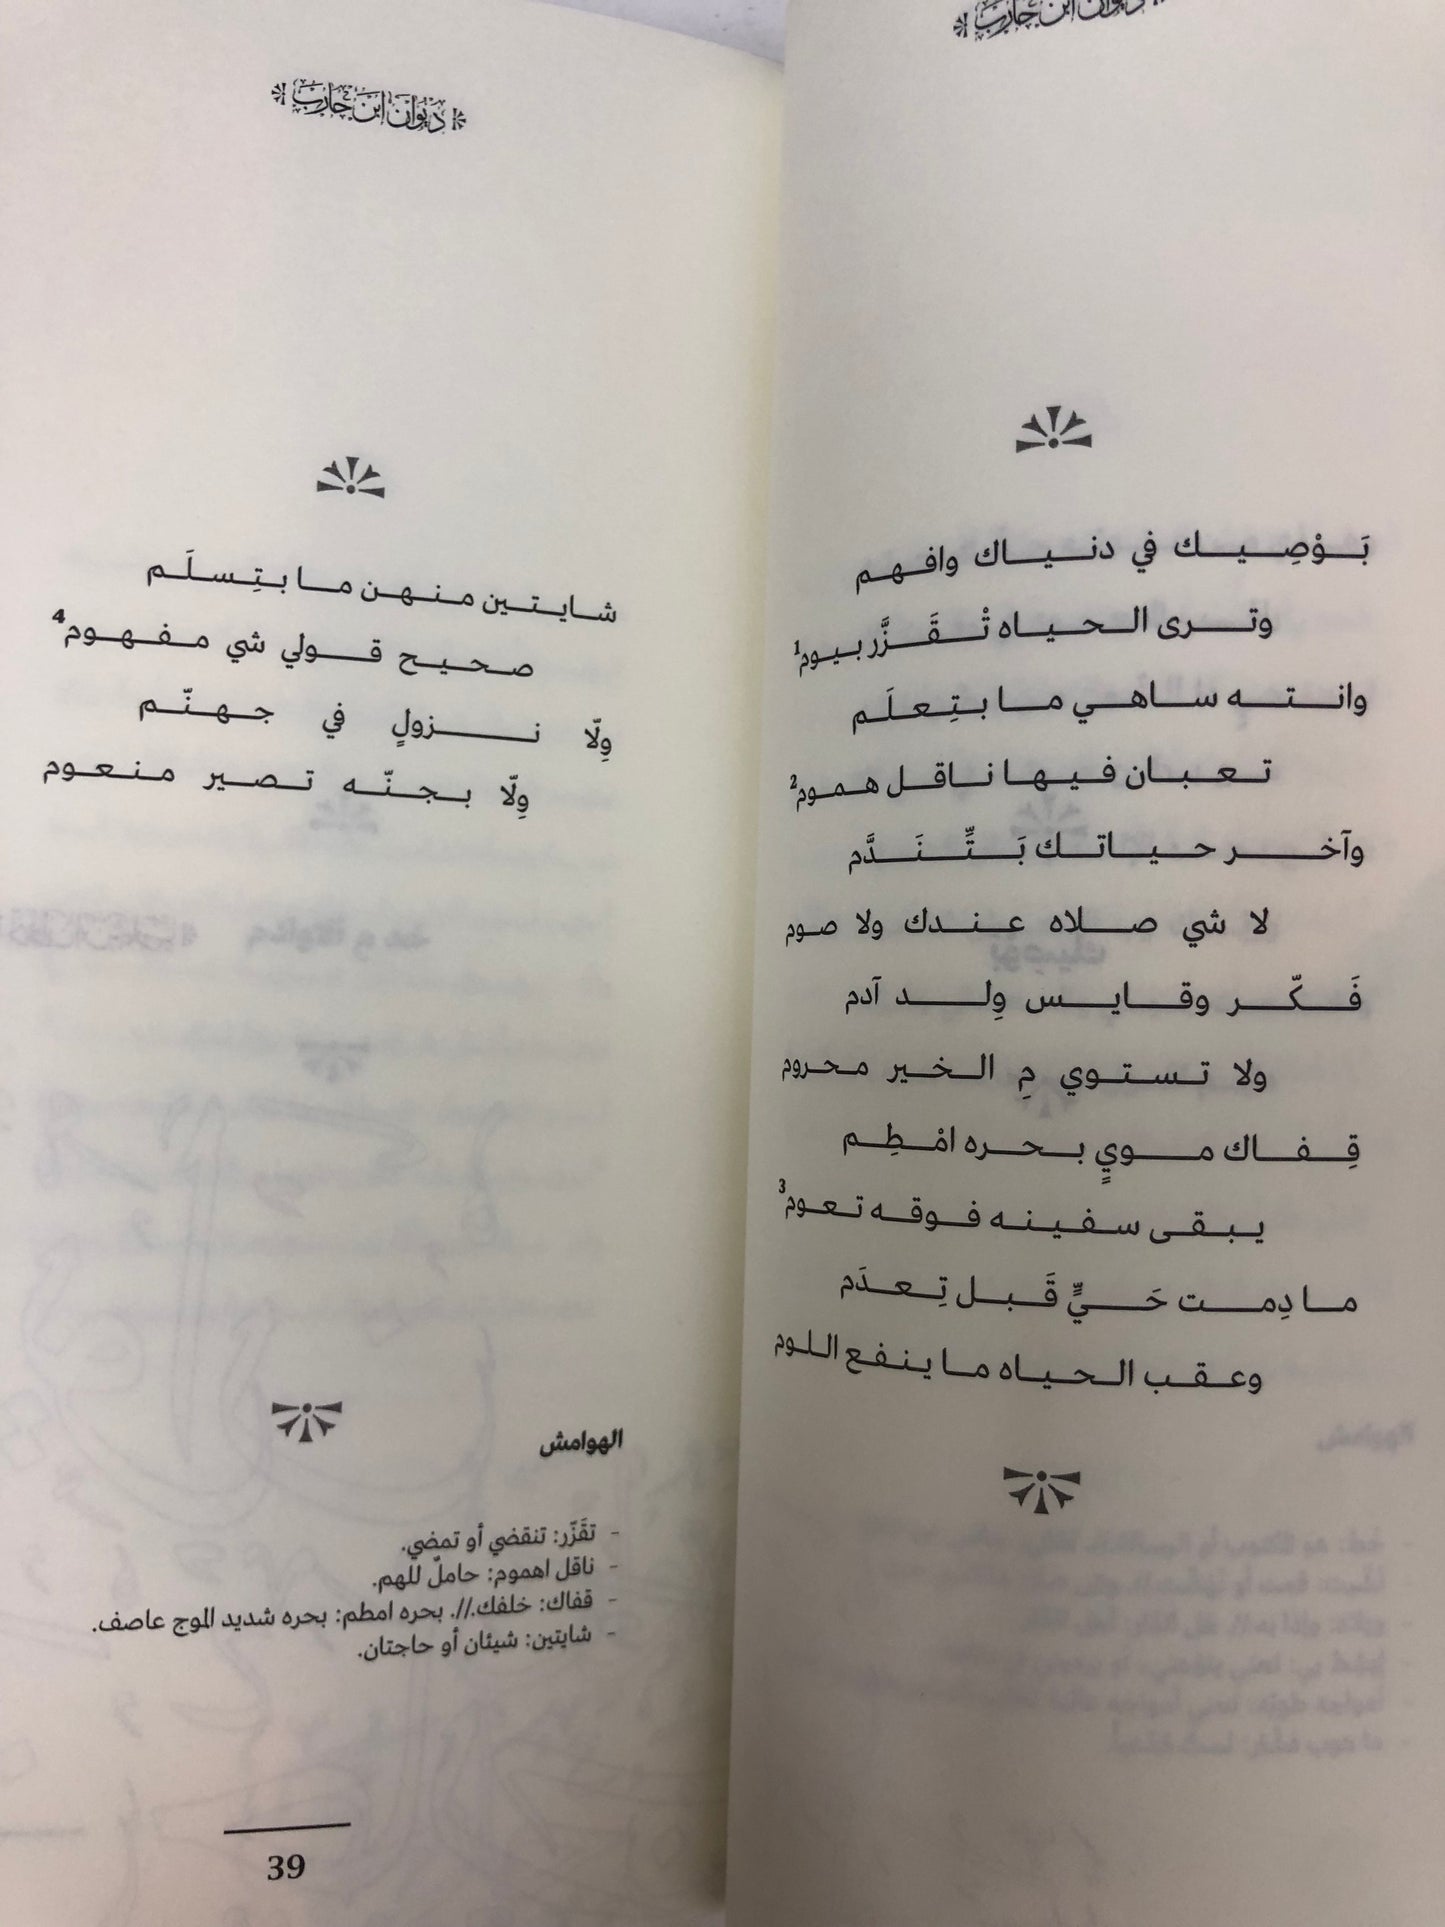 ديوان ابن حارب
بَوْصِيك في دنياك وافهم
وترى الحياه تْقَزَّر بيوم1
وانته ساهي ما بتِعلَم
تعبان فيها ناقل هموم2
وآخر حياتك بَتِّنَدَّم
لا شي صلاه عندك ولا صوم
فَكّر وقايس وِلد آدم
ولا تستوي مِ الخير محروم
قِفاك مويٍ بحره امْطِم
يبقى سفينه فوقه تعوم3
ما دِمت حَيٍّ قَبل تِعدَم
وعقب الحياه ما ينفع اللوم
ديوان ابن حارب
شايتين منهن ما بتِسلَم
صحيح قولي شي مفهوم4
وِلّا نزولٍ في جهنّم
وِلّا بجنّه تصير منعوم
الهوامش
- تقَزّر: تنقضي أو تمضي.
- ناقل اهموم: حاملٌ للهم.
- قفاك: خلفك.//. بحره امطم: بحره شديد الموج عاصف.
- شايتين: شيئان أو حاجتان.
39